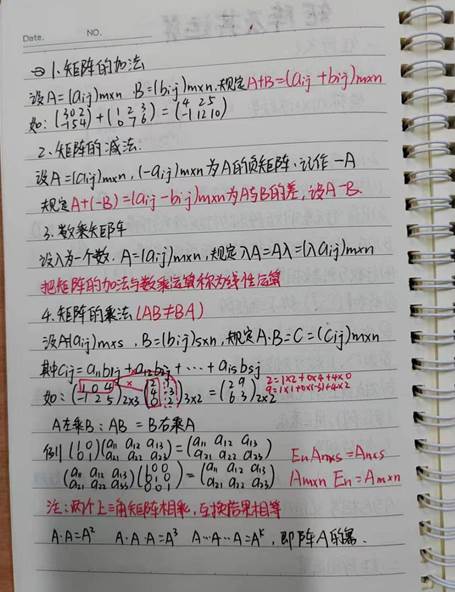 Date. NO.
1.矩阵的加法
设A=(aij)m×n B=(bij)m×n.规定A+B=(aij+bij)m×n
如:
2.矩阵的减法:
设A=(aij)m×n,(-aij)m×n为A的负矩阵,记作-A
规定A+(-B)=(aij-bij)m×n为A与B的差,设A-B.
3.数乘矩阵
设λ为一个数. A=(aij)m×n,规定λA=Aλ=(λaij)m×n
把矩阵的加法与数乘运算称为线性运算
4.矩阵的乘法(AB≠BA)
设A(aij)m×s,B=(bij)s×n,规定A·B=C=(Cij)m×n
其中Cij=ai1b1j+ai2b2j+···+aisbsj
如: (1 0 4 / -1 2 5)2×3 3×2 = (2 9 / 6 3)2×2 2=1×2+0×4+4×0
A左乘B:AB=B右乘A
例 (1 0 / 0 1)(a11 a12 a13 / a21 a22 a23)=(a11 a12 a13 / a21 a22 a23) EnAn×s=An×s
(a11 a12 a13 / a21 a22 a23)(1 0 0 / 0 1 0 / 0 0 1)=(a11 a12 a13 / a21 a22 a23) Am×n En=Am×n
注:两个上三角矩阵相乘,互换结果相等
A·A=A² A·A·A=A³ A···A···A=Aᵏ,即阵A的幂.